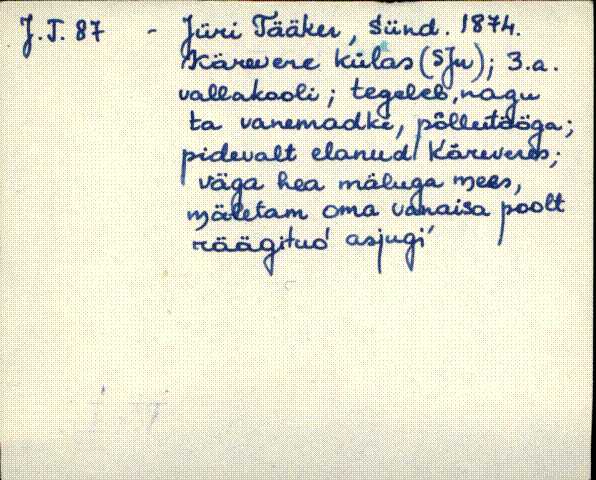 J.T. 87 - Jüri Tääker, sünd. 1874.
Kärevere külas (SJn); 3.a.
vallakooli; tegeleb, nagu
ta vanemadki, põllutööga;
pidevalt elanud Käreveres;
väga hea mäluga mees,
mäletam oma vanaisa poolt
räägitud asjugi